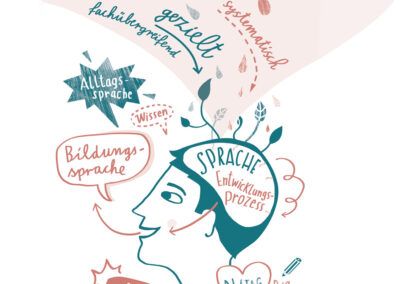 fachübergreifend
gezielt
systematisch
Alltags-
sprache
Wissen
Bildungs-
sprache
SPRACHE
Entwicklungs-
prozess